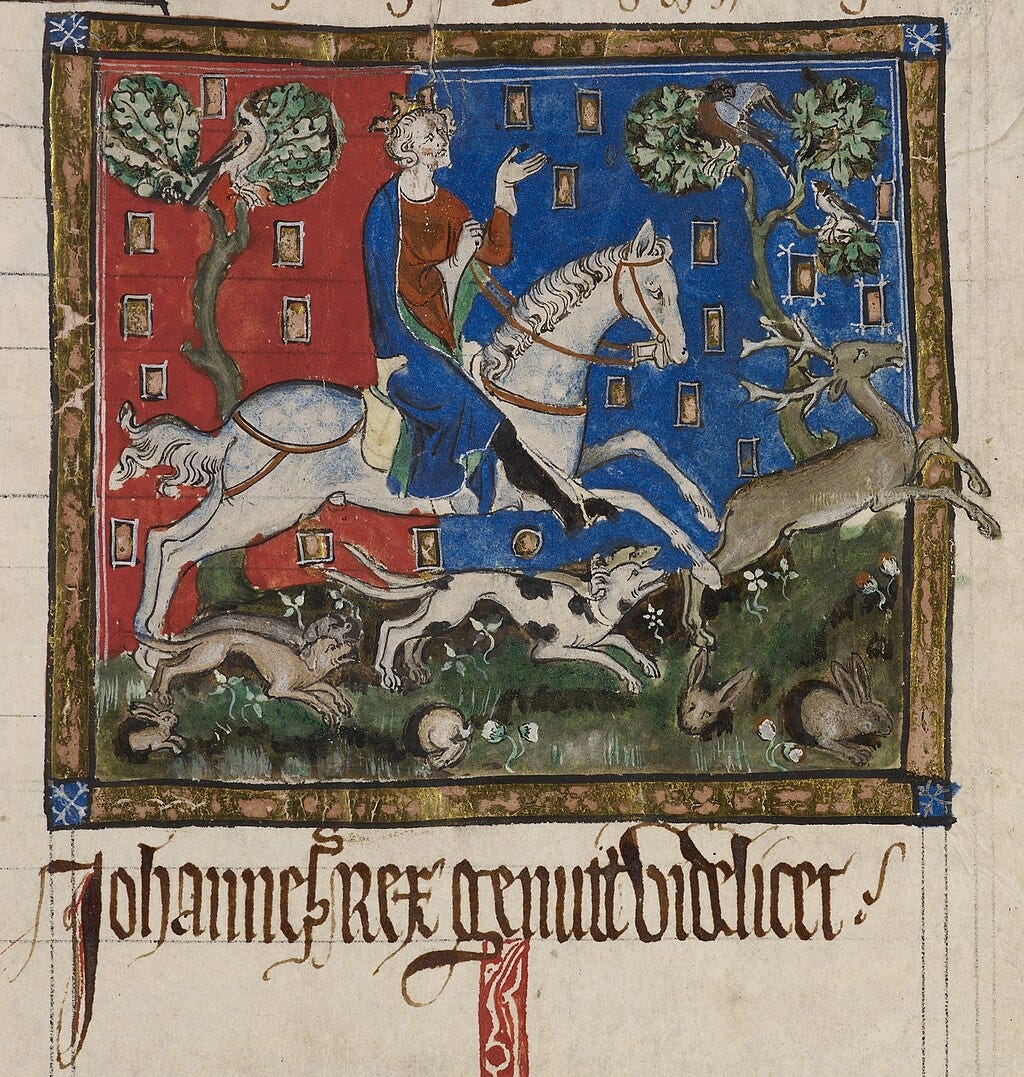 Johannes Rex genuit videlicet: